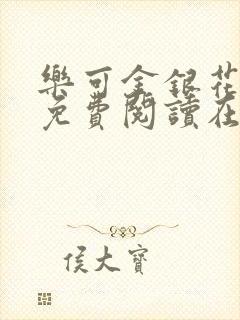 樂可金銀花
免費閱讀在
侯大寶